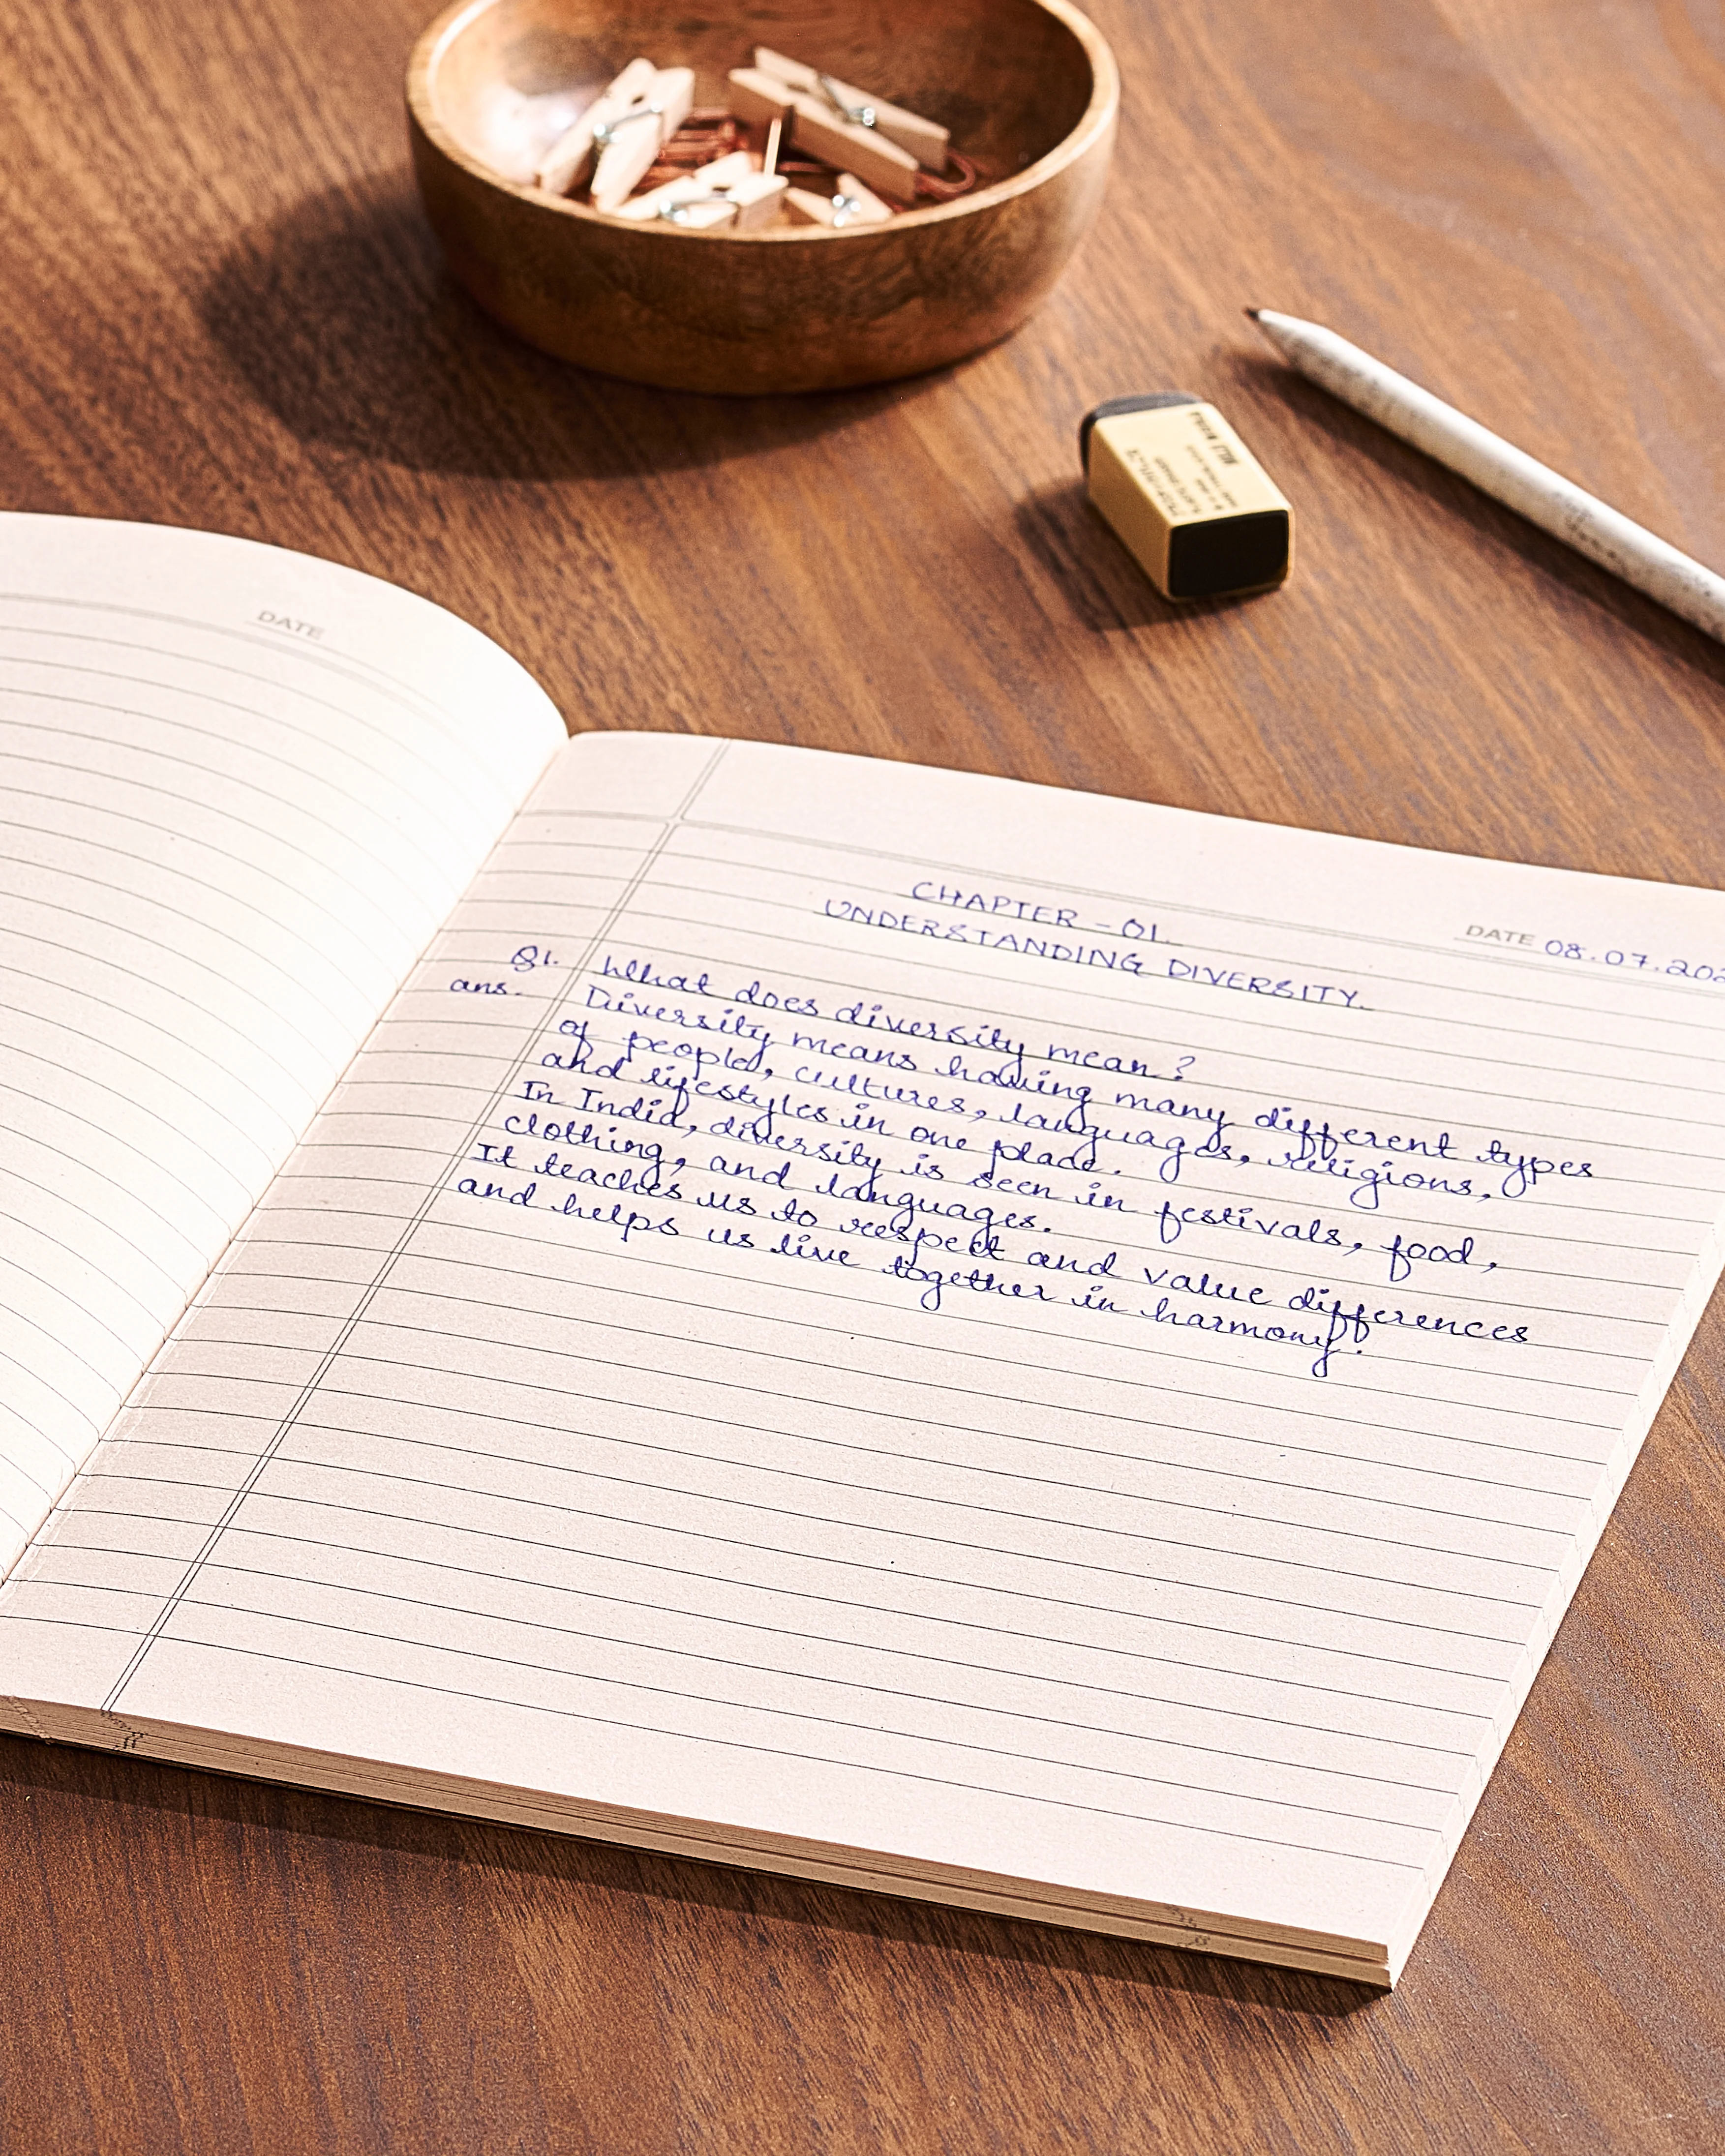 DATE
CHAPTER - 01.
UNDERSTANDING DIVERSITY.
DATE 08.07.202
Q1. What does diversity mean?
ans. Diversity means having many different types
of people, cultures, languages, religions,
and lifestyles in one place.
In India, diversity is seen in festivals, food,
clothing, and languages.
It teaches us to respect and value differences
and helps us live together in harmony.